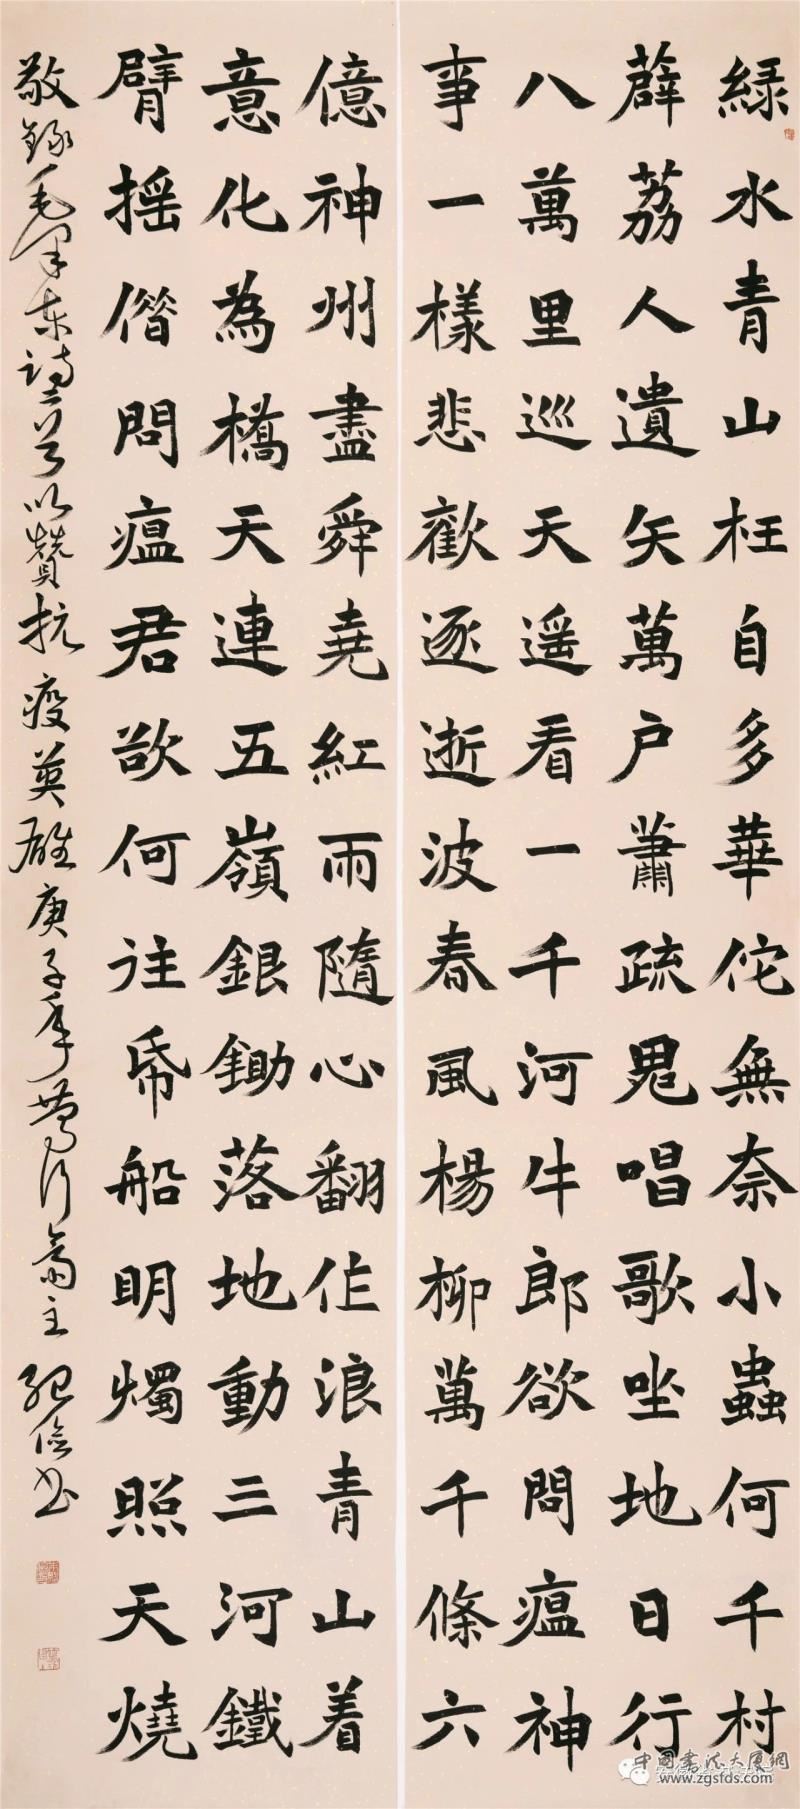 緑水青山枉自多華佗無奈小蟲何千村
薜荔人遺矢萬户蕭疏鬼唱歌坐地日行
八萬里巡天遥看一千河牛郎欲問瘟神
事一樣悲歡逐逝波春風楊柳萬千條六
億神州盡舜堯紅雨隨心翻作浪青山着
意化為橋天連五嶺銀鋤落地動三河鐵
臂摇偺問瘟君欲何往帋船明燭照天燒
敬錄毛澤東詩二首以贊抗疫英雄庚子年齋主書
中國書法大厦網
www.zgsfds.com